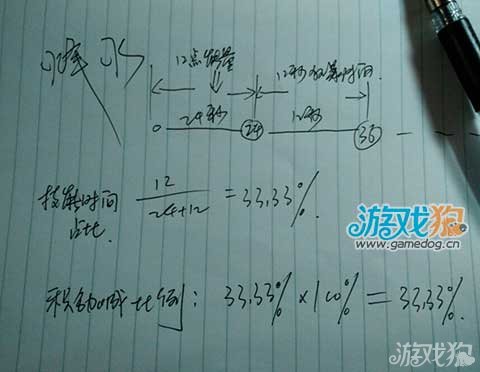 12点能量
12秒技能时间
0 24秒 24 12秒 36
技能时间占比 12/24+12 = 33.33%
积勋减比例: 33.33% × 100% = 33.33%
游戏狗
www.gamedog.cn
游戏狗